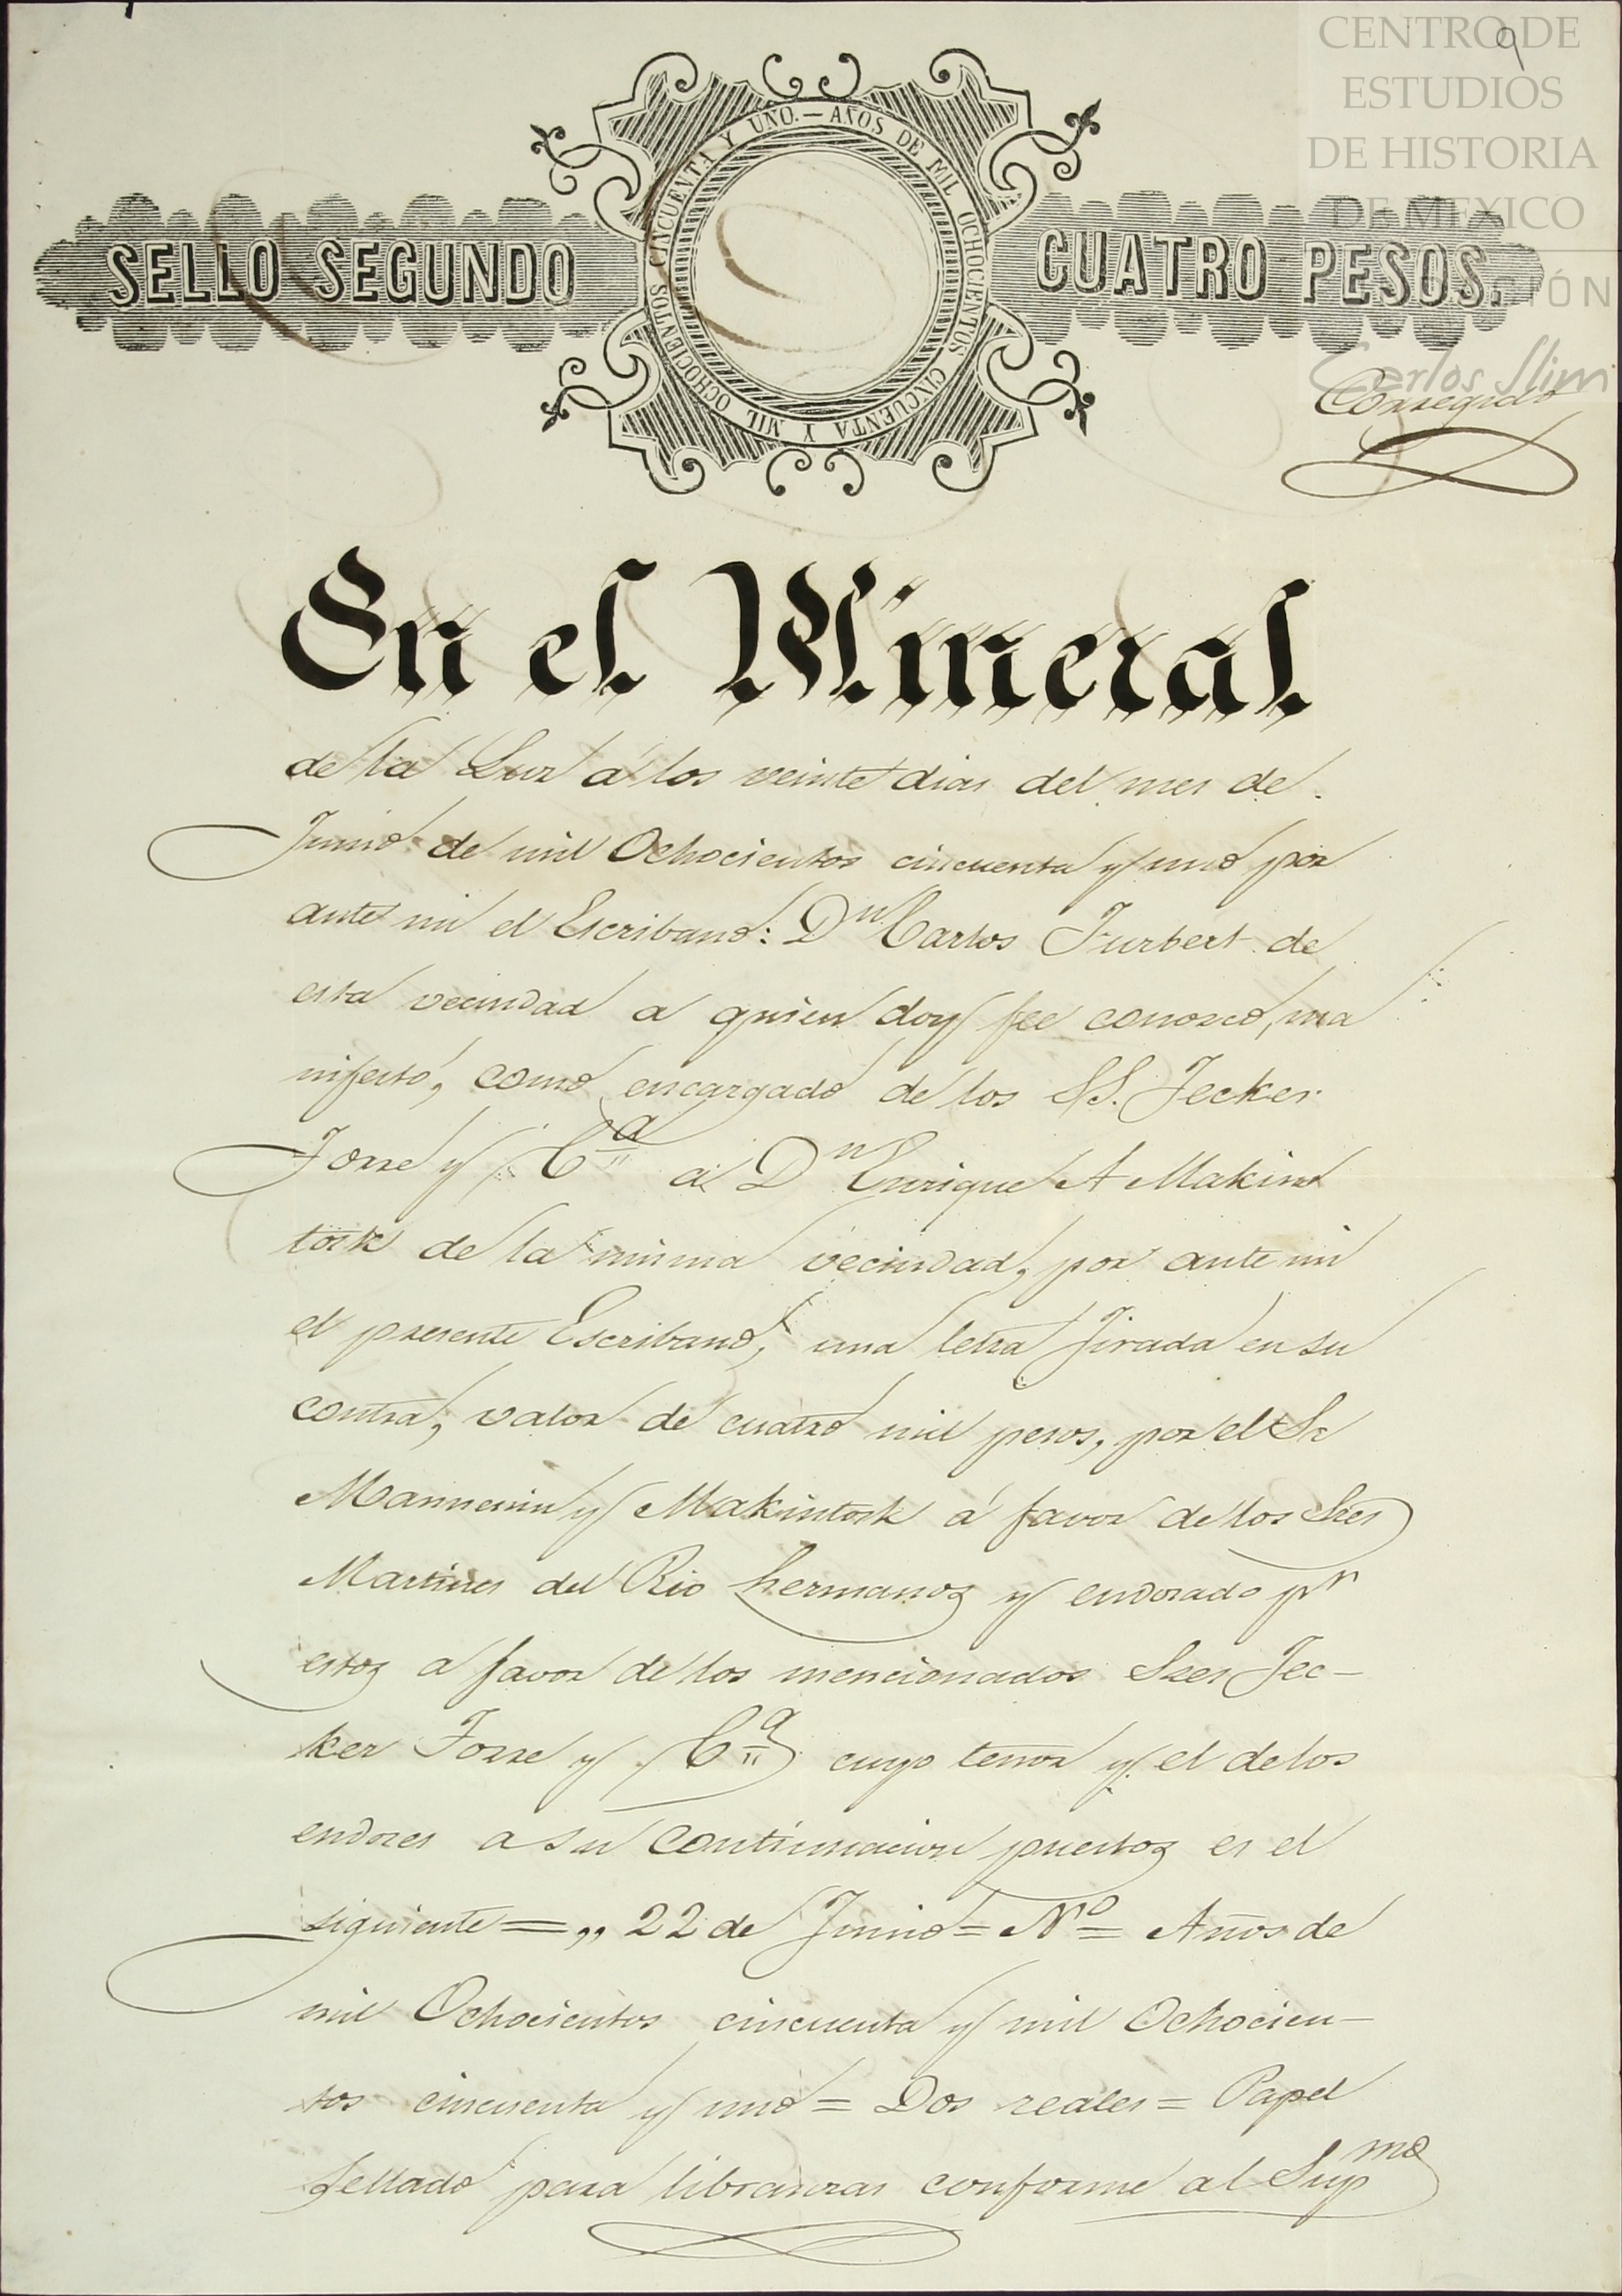 9
CENTRO DE
ESTUDIOS
DE HISTORIA
DE MEXICO
Carlos Slim
SELLO SEGUNDO
AÑOS DE MIL OCHOCIENTOS CINCUENTA Y MIL OCHOCIENTOS CINCUENTA Y UNO.—
CUATRO PESOS.
Corregido
En el Mineral
de la Luz a los veinte dias del mes de
Junio de mil Ochocientos cincuenta y uno por
ante mi el Escribano: Dn Carlos Furbert de
esta vecindad a quien doy fee conosco, ma
nifestó, como encargado de los SS. Jecker
Torre y Ca a Dn Enrique A Makins
tosk de la misma vecindad, por ante mi
el presente Escribano, una letra Jirada en su
contra, valor de cuatro mil pesos, por el Sr
Manneciny Makintosk á favor de los Sres
Martines del Rio hermanos y endosado pr
estos a favor de los mencionados Sres Jec–
ker Torre y Ca cuyo tenor y el de los
endoces a su continuacion puestos es el
siguiente =,, 22 de Junio = No = Años de
mil Ochocientos cincuenta y mil Ochocien–
tos cincuenta y uno = Dos reales = Papel
Sellado para libranzas conforme al Supmo